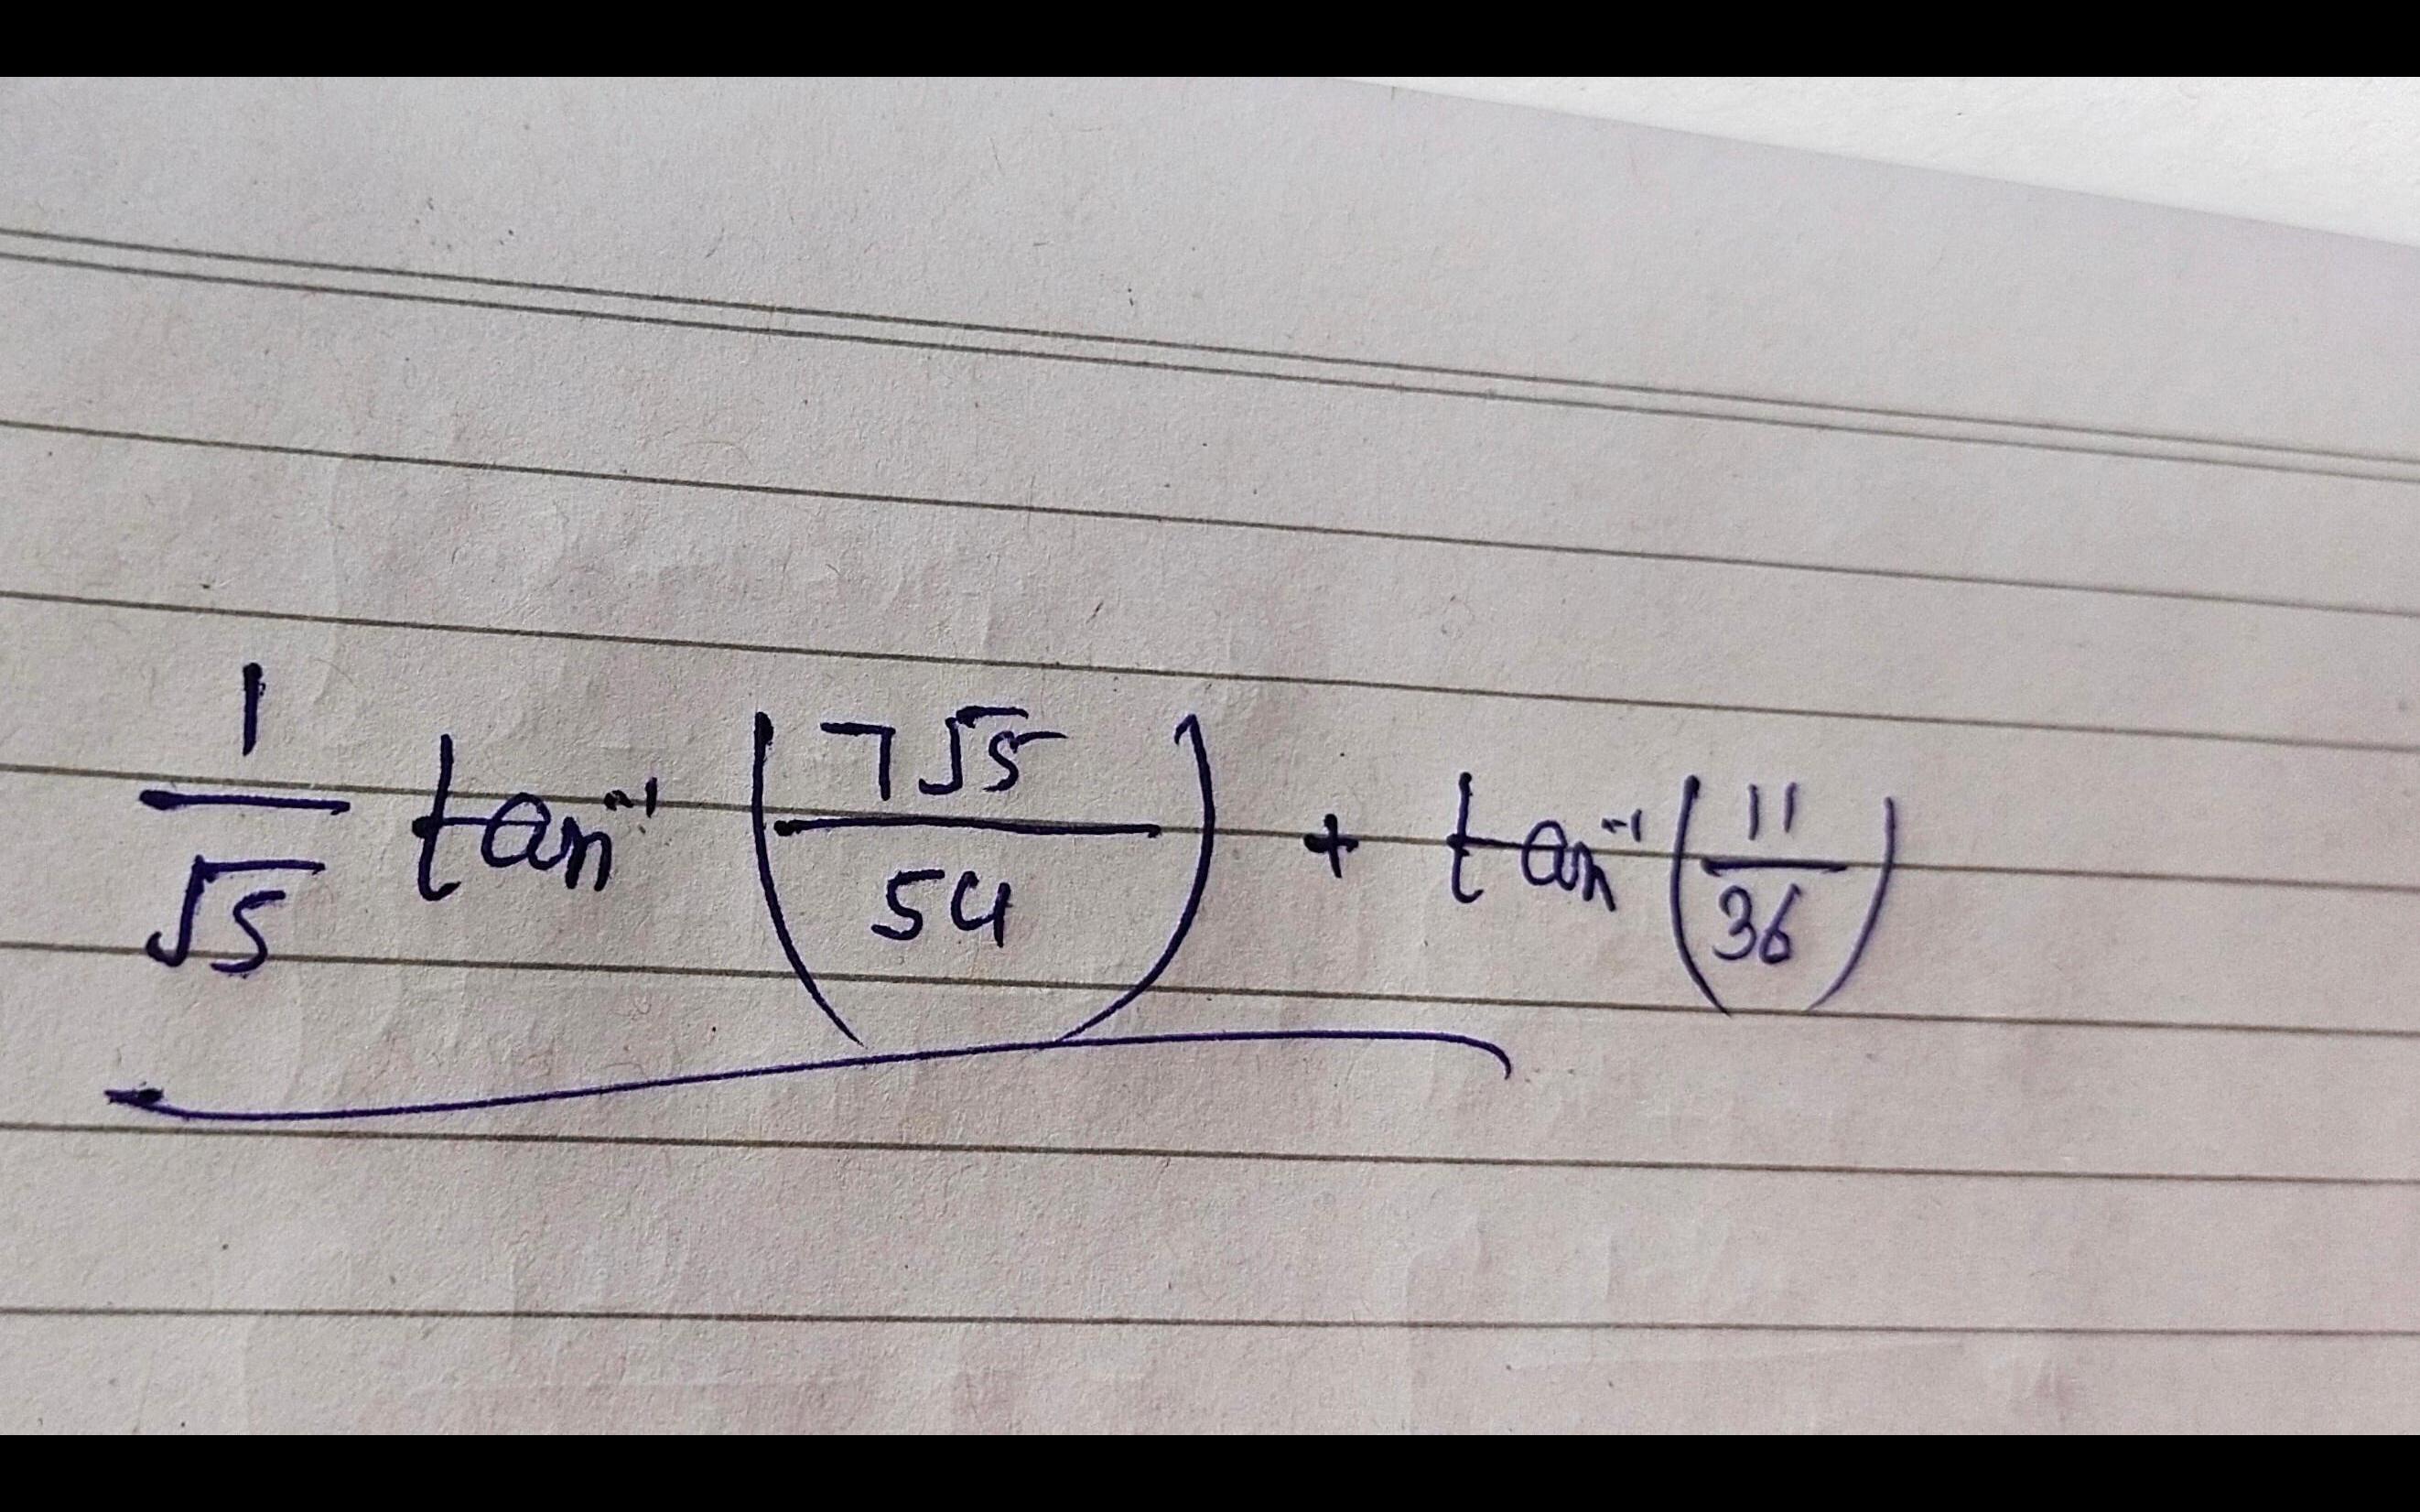 1/√5 tan⁻¹ (7√5/54) + tan⁻¹ (11/36)